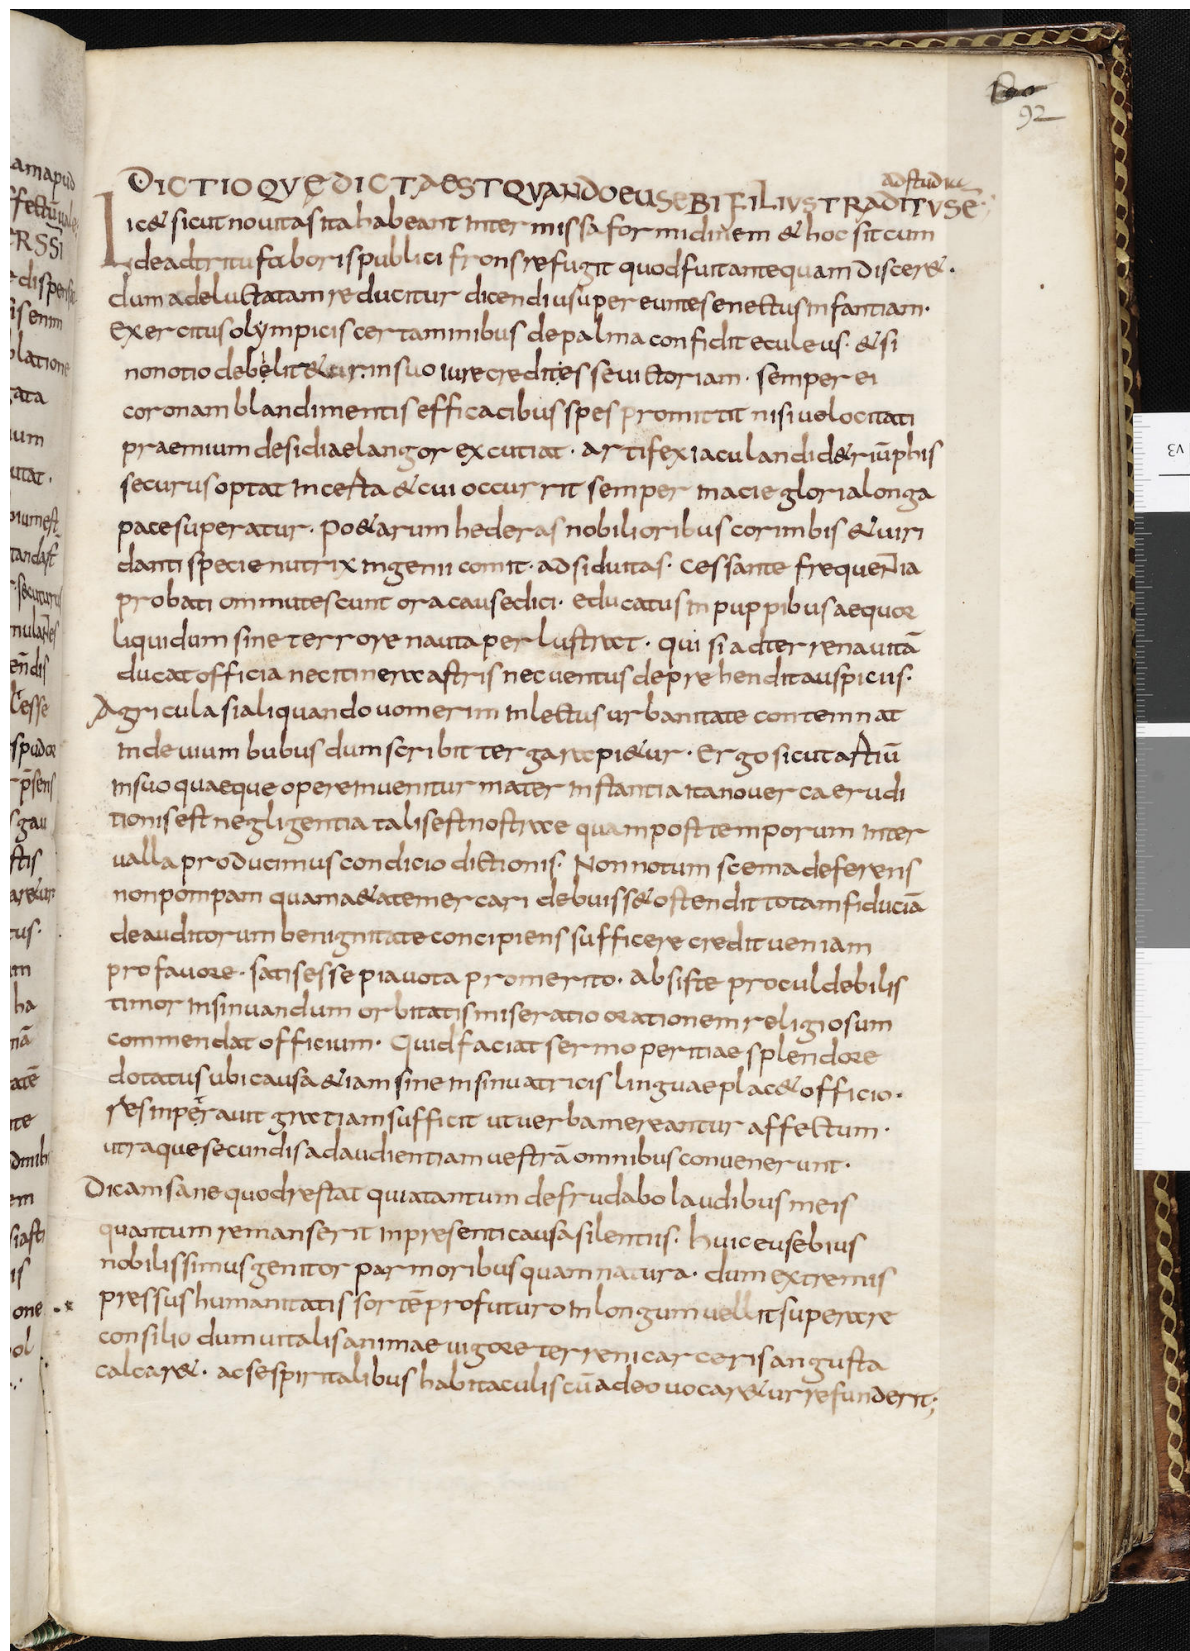 92
DICTIO QVE DICTA EST QVANDO EUSEBI FILIVS TRADITVS E
ad studiu
Lic& sicut nouitas ita habeant intermissa formidinem & hoc sit cum
de adtritu fabori spublici frons refugit quod fuit antequam disceret.
dum adeluctatam reducitur dicendi usu pereunte senectus infantiam.
Exercitus olympicis certaminibus de palma confidit eculeus. & si
non otio debelit&ur. in suo iure credit esse uictoriam. semper ei
coronam blandimentis efficacibus spes promittit nisi uelocitati
praemium desidiae langor excutiat. artifex iaculandi d&riūphis
securus optat incesta & cui occurrit semper in acie gloria longa
pace superatur. po&arum hederas nobilioribus corimbis & uiri
danti specie nutrix ingenii comit. adsiduitas. cessante frequentia
probati ommutescunt ora causedici. educatus in puppibus aequor
liquidum sine terrore nauta perlustrat. qui si ad terrena uitā
ducat officia nec itinera astris nec uentus deprehendit auspiciis.
Agricula si aliquando uomerim inlectus urbanitate contemnat
inde uium bubus dum scribit terga rapi&ur. Ergo sicut astiū
in suo quaeque opere inuenitur mater instantia ita nouerca erudi
tionis est negligentia talis est nostrae quam post temporum inter
ualla producimus condicio dictionis. Non notum scema deferens
non pompam quam a&ate mercari debuiss& ostendit totam fiduciā
de auditorum benignitate concipiens sufficere credit ueniam
pro fauore. satis esse pia uota pro merito. absiste procul debilis
timor insinuandum orbitatis miseratio orationem religiosum
commendat officium. Quid faciat sermo peritiae splendore
dotatus ubi causa &iam sine insinuatricis linguae plac& officio.
res inperauit gratiam sufficit ut uerba mereantur affectum.
utraque secundis ad audientiam uestrā omnibus conuenerunt.
Dicam sane quod restat quia tantum defrudabo laudibus meis
quantum remanserit in presenti causa silentiis. huic eusebius
nobilissimus genitor par moribus quam natura. dum extremis
pressus humanitatis sortē profuturo in longum uellit superare
consilio dum uitalis animae uigore terreni carceris angusta
calcar&. ac se spiritalibus habitaculis cū a deo uocar&ur refunderit;